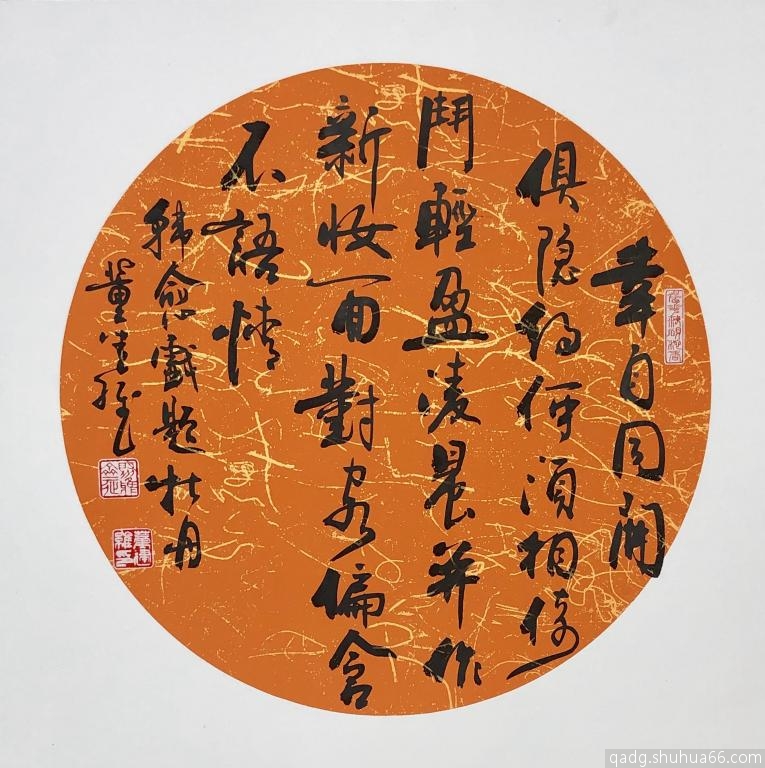 幸自同開
俱隐约何須相倚
鬥輕盈凌晨并作
新妆面對客偏含
不語情
韩愈戲題牡丹
董
qadg.shuhua66.com